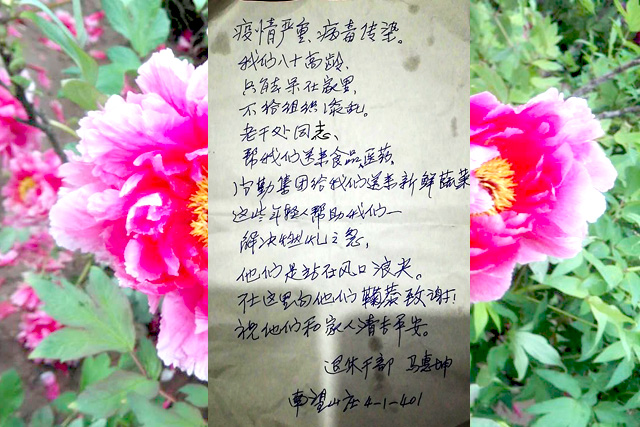 疫情严重、病毒传染。
我们八十高龄,
只能呆在家里,
不给组织添乱。
老干处同志、
帮我们送来食品医药,
后勤集团给我们送来新鲜蔬菜
这些年轻人帮助我们一
解决燃眉之急,
他们是站在风口浪尖。
在这里向他们鞠躬致谢!
祝他们和家人清吉平安。
退休干部 马惠坤
南望山庄 4-1-401